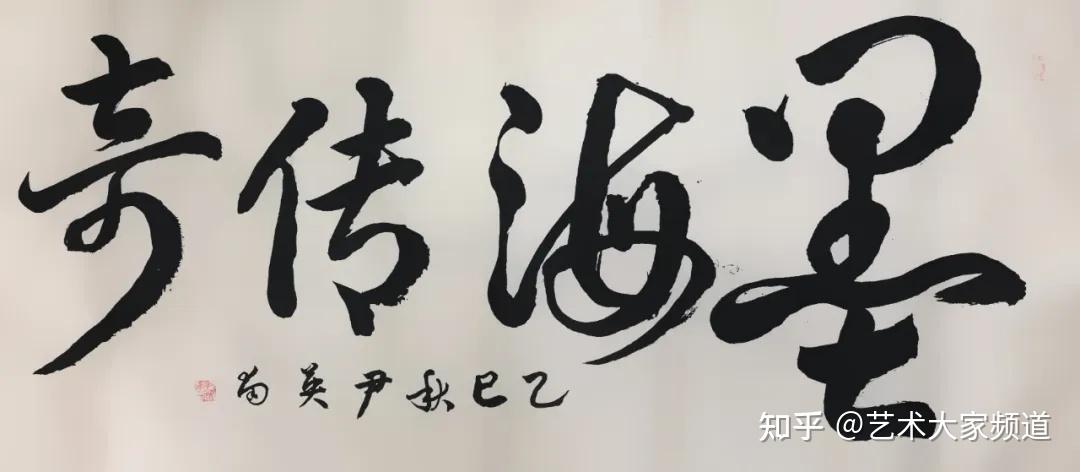 墨海传奇
乙巳秋尹英菊
知乎 @艺术大家频道